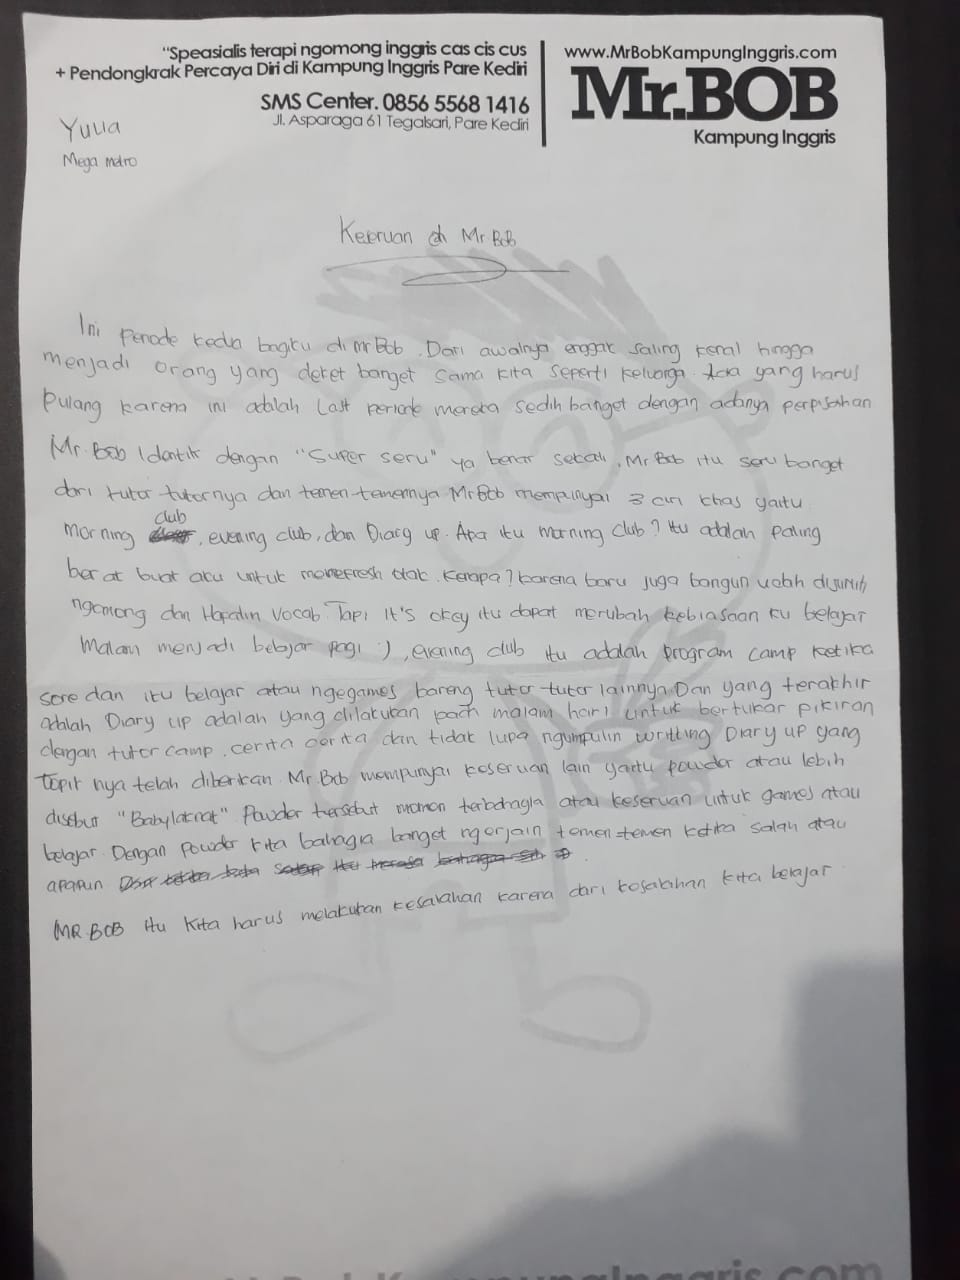 "Speasialis terapi ngomong inggris cas cis cus
+ Pendongkrak Percaya Diri di Kampung Inggris Pare Kediri
SMS Center. 0856 5568 1416
Jl. Asparaga 61 Tegalsari, Pare Kediri
www.MrBobKampungInggris.com
Mr.BOB
Kampung Inggris
Yulia
Mega metro
Keseruan di Mr Bob
Ini Periode kedua bagiku di mr Bob. Dari awalnya enggak saling kenal hingga
menjadi orang yang deket banget sama kita seperti keluarga. Ada yang harus
pulang karena ini adalah last periode mereka sedih banget dengan adanya perpisahan
Mr. Bob Identik dengan "Super seru" ya benar sekali, Mr Bob itu seru banget
dari tutor tutornya dan temen-temennya Mr Bob mempunyai 3 ciri khas yaitu
morning club, evening club, dan Diary up. Apa itu morning club? Itu adalah paling
berat buat aku untuk merefresh otak. Kenapa? karena baru juga bangun udah disuruh
ngomong dan Hapalin vocab. Tapi It's okey itu dapat merubah kebiasaan ku belajar
malam menjadi belajar pagi :), evening club itu adalah program camp ketika
sore dan itu belajar atau ngegames bareng tutor-tutor lainnya. Dan yang terakhir
adalah Diary up adalah yang dilakukan pada malam hari untuk bertukar pikiran
dengan tutor camp. cerita cerita dan tidak lupa ngumpulin writting Diary up yang
topik nya telah diberikan. Mr. Bob mempunyai keseruan lain yaitu powder atau lebih
disebut "Babylaknat" Powder tersebut momen terbahagia atau keseruan untuk games atau
belajar. Dengan powder kita bahagia banget ngerjain temen-temen ketika salah atau
apapun
MR. BOB itu Kita harus melakukan kesalahan karena dari kesalahan kita belajar